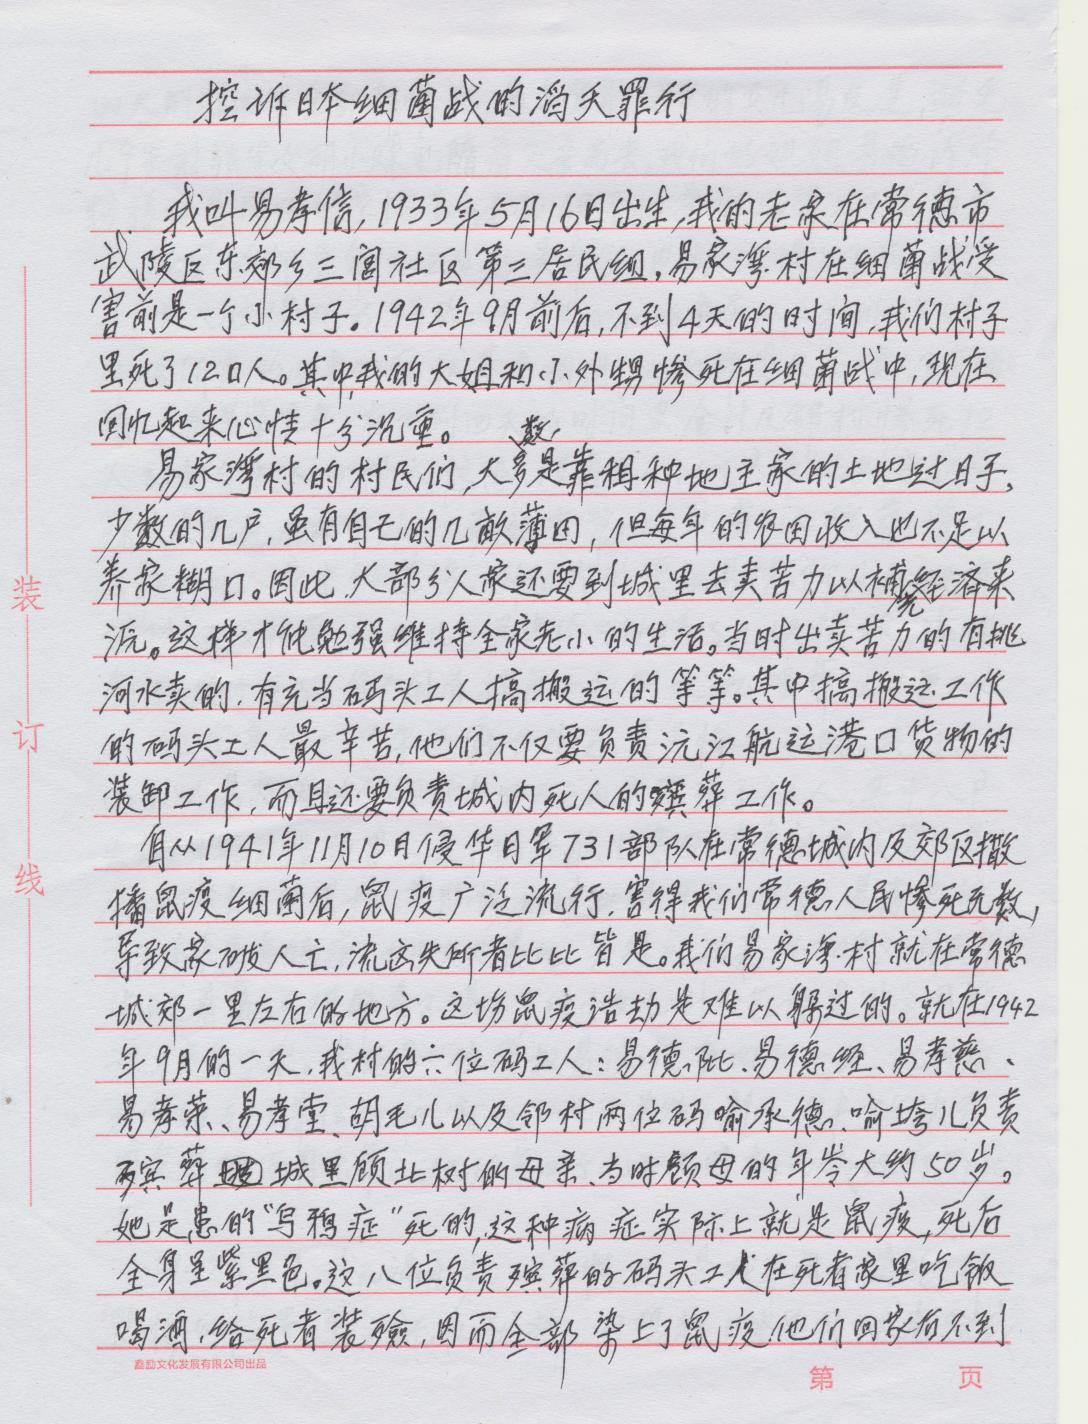 控诉日本细菌战的滔天罪行
我叫易孝信,1933年5月16日出生,我的老家在常德市
武陵区东郊乡三闾社区第三居民组,易家湾村在细菌战受
害前是一个小村子。1942年9月前后,不到4天的时间,我们村子
里死了120人。其中,我的大姐和小外甥惨死在细菌战中,现在
回忆起来心情十分沉重。
易家湾村的村民们,大多数是靠租种地主家的土地过日子,
少数的几户,虽有自己的几亩薄田,但每年的农田收入也不足以
养家糊口。因此,大部分人家还要到城里去卖苦力以补充经济来
沅。这样才能勉强维持全家老小的生活。当时出卖苦力的有挑
河水卖的,有充当码头工人搞搬运的等等。其中搞搬运工作
的码头工人最辛苦,他们不仅要负责沅江航运港口货物的
装卸工作,而且还要负责城内死人的殡葬工作。
自从1941年11月10日侵华日军731部队在常德城内及郊区撒
播鼠疫细菌后,鼠疫广泛流行,害得我们常德人民惨死无数,
导致家破人亡,流离失所者比比皆是。我们易家湾村就在常德
城郊一里左右的地方。这场鼠疫浩劫是难以躲过的。就在1942
年9月的一天,我村的六位码工人:易德阶、易德经、易孝慈、
易孝荣、易孝堂、胡毛儿以及邻村两位码喻承德、喻垮儿负责
殡葬城里顾北树的母亲、当时顾母的年岺大约50岁。
她是患的“乌鸦症”死的,这种病症实际上就是鼠疫,死后
全身呈紫黑色。这八位负责殡葬的码头工人在死者家里吃饭
喝酒,给死者装殓,因而全部染上了鼠疫,他们回家后不到
装
订
线
鑫励文化发展有限公司出品
第 页